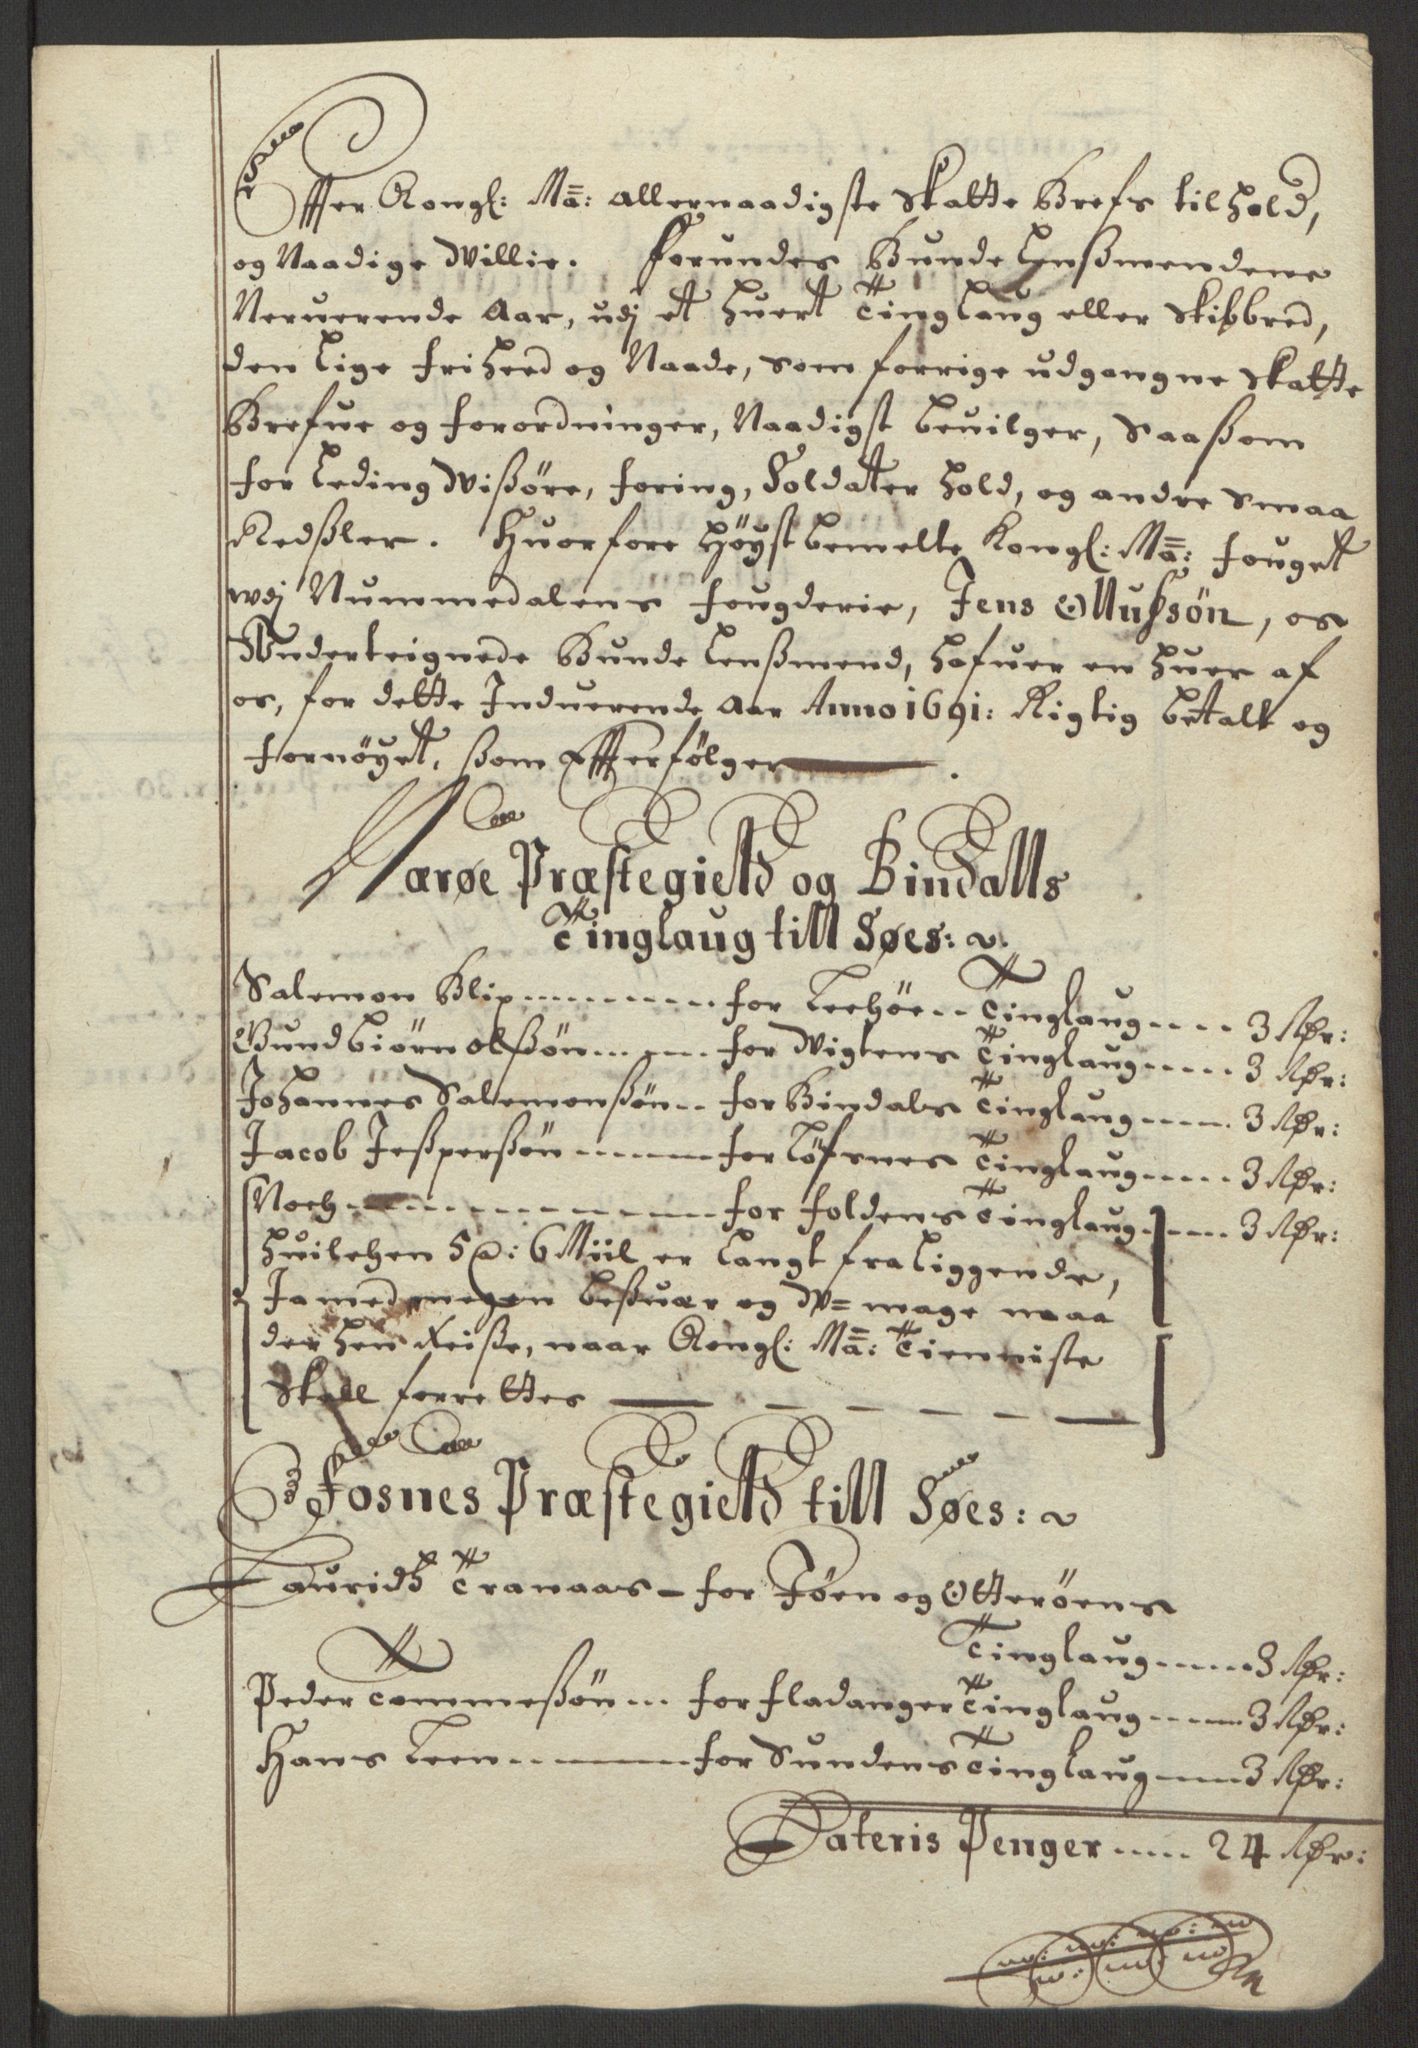 Effter Kongl: Ma: allernaadigste Skatte Brefs tilhold,
og Naadige Willie. Forundes Bunde Lenßmendene
Neruerende Aar, udj et huert Tinglaug eller Skibbred,
den lige friheed og Naade, som forrige udgangne Skatte
Brefue og forordninger, Naadigst beuilger, Saaßom
for Leding Wißöre, foring, Soldatter hold, og andre Smaa
Redßler. Huorfore Höystbemelte Kongl: Ma: fougett
wdj Nummedalens fougderie, Jens Ollufsøn, os
Underteignede Bunde Lenßmend, hafuer en huer af
os, for dette Induerende Aar Anno 1691: Rigtig betalt og
fornöyet, ßom Effterfölger
Nærøe Præstegield og Bindalls
Tinglaug till Søes:
Salemon Blix for Leehöe Tinglaug 3 Rdr:
Gundbiörn olßön for Wigtens Tinglaug 3 Rdr:
Johannes Salemonßön for Bindals Tinglaug 3 Rdr:
Jacob Jeßperßön for Löfsnes Tinglaug 3 Rdr:
Noch for foldens Tinglaug 3 Rdr:
huilchen 5 a: 6 Miil er langt fra liggende,
Ja med megen beßuær og W= mage maa
der hen Reiße, naar Kongl: Ma: Tienniste
Skall forrettes
Fosnes Præstegield till Søes:
Lauridtz Tranaas for Jöen og Otteröens
Tinglaug 3 Rdr:
Peder Tommeßön for fladanger Tinglaug 3 Rdr:
Hans Leen for Sundens Tinglaug 3 Rdr:
Lateris Penger 24 Rdr: